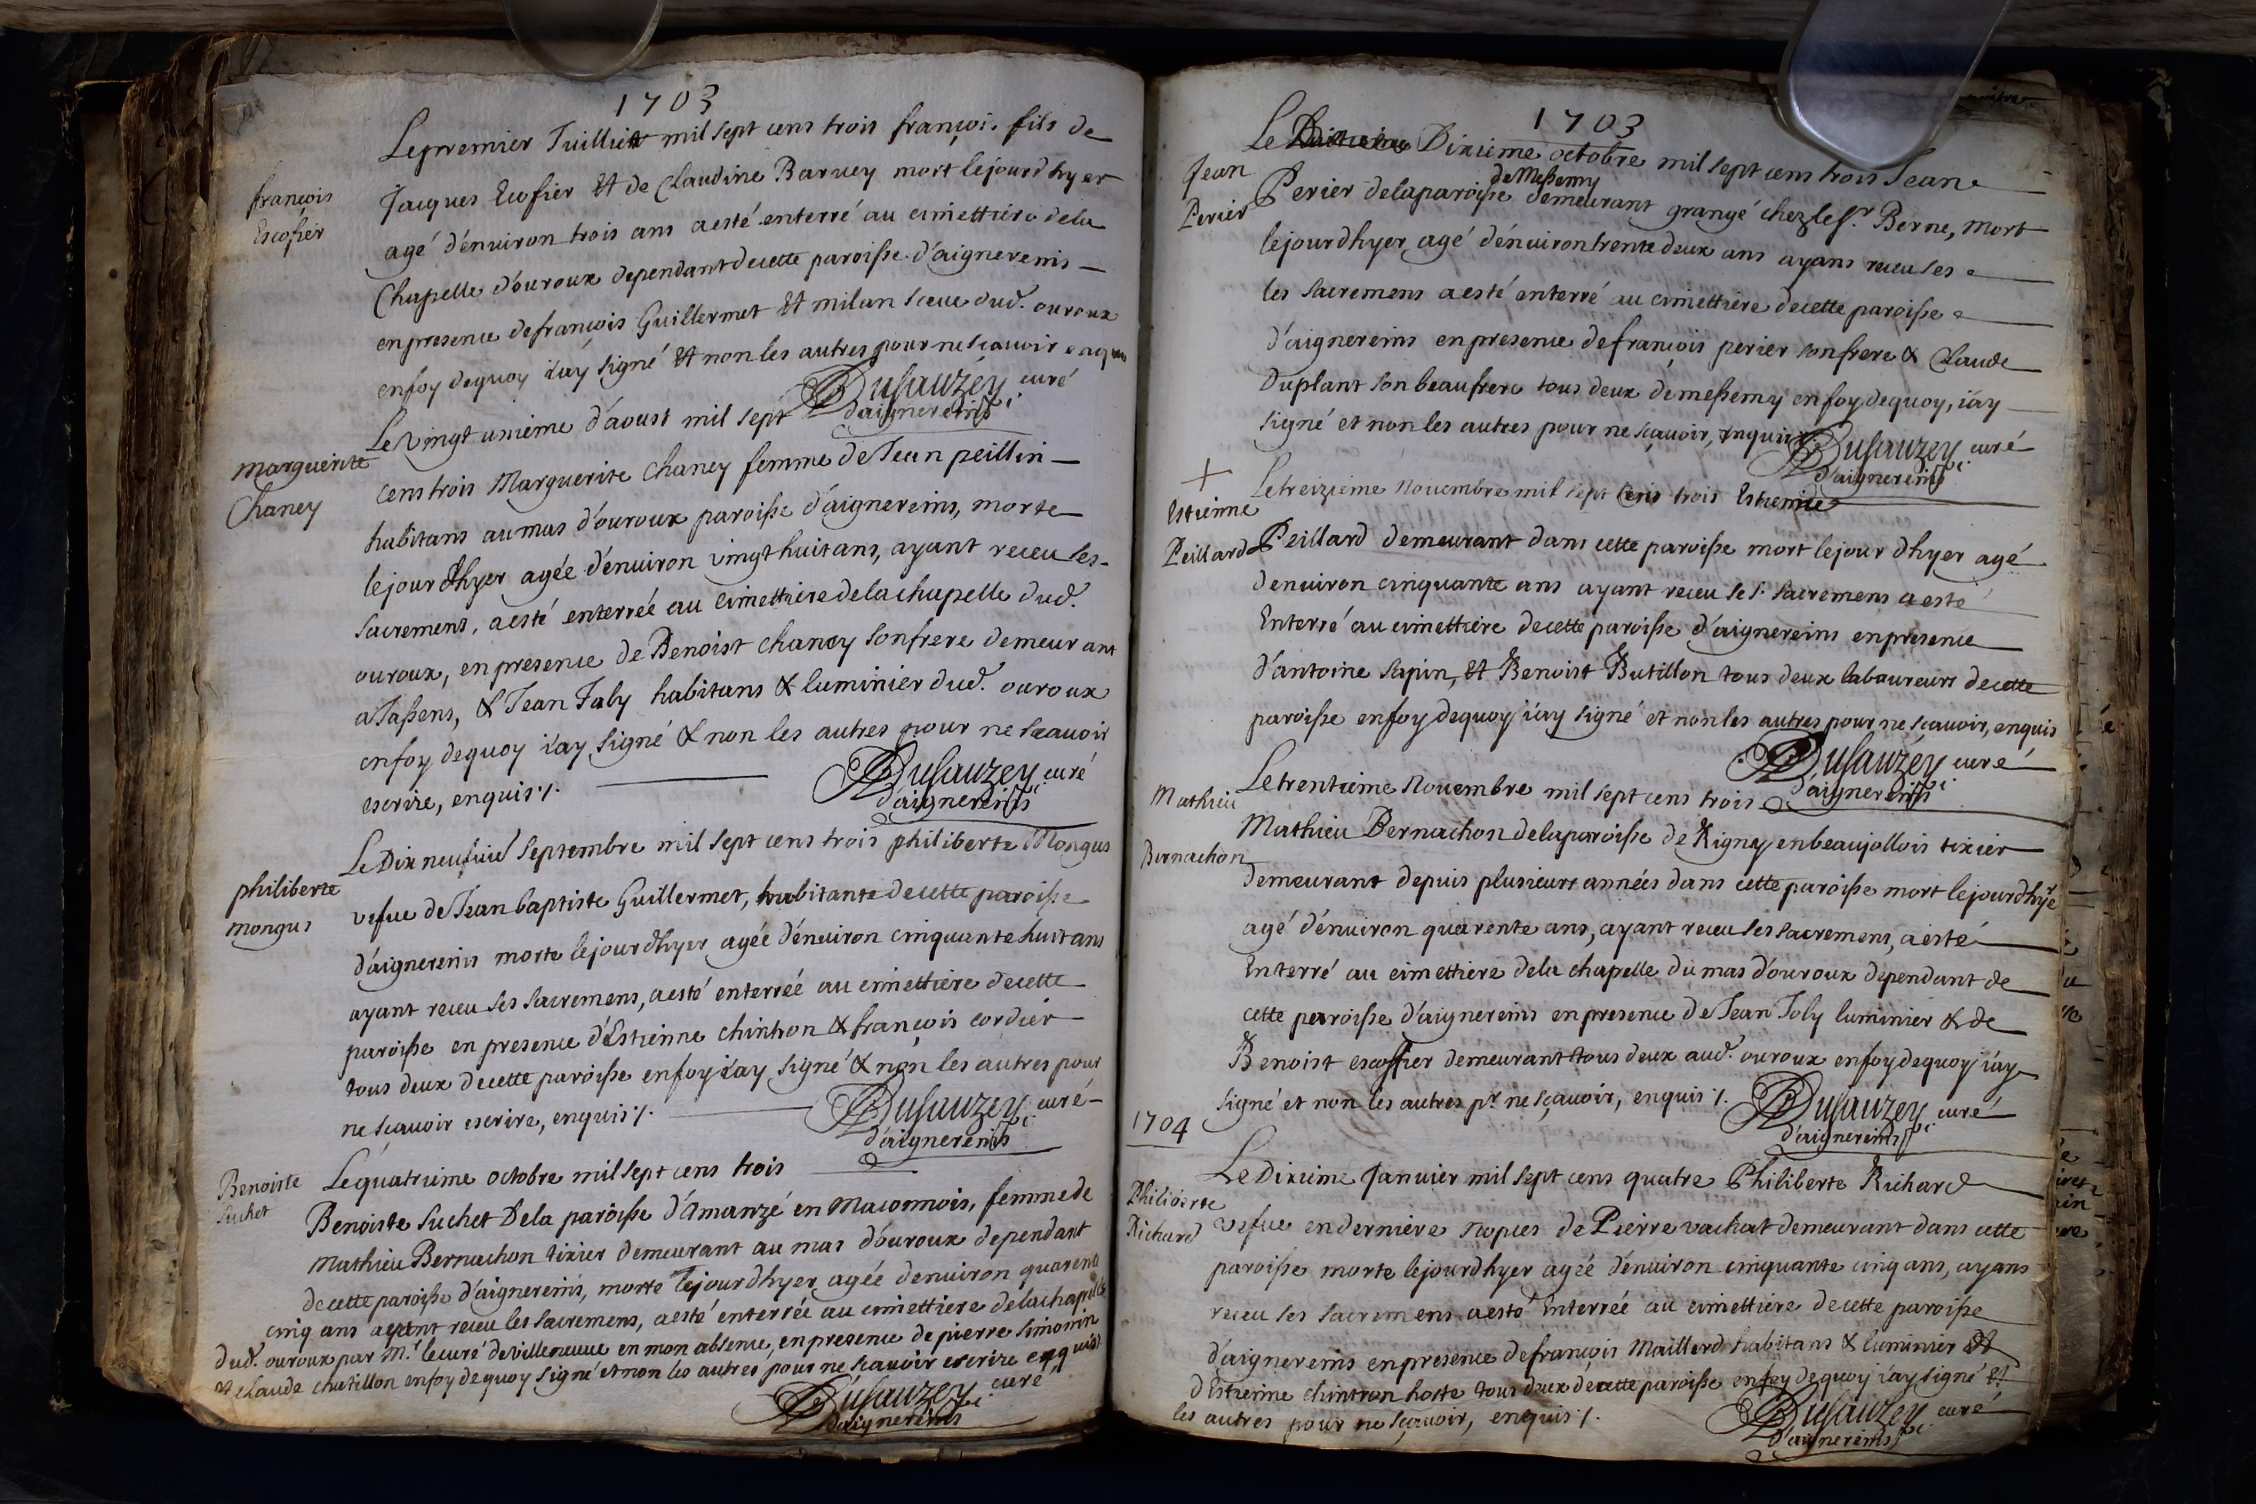 1703
Le premier Juilliet mil sept cens trois françois fils de
françois
Escofier
Jacques Ecofier Et de Claudine Baruey mort le jourdhyer
agé d'énuiron trois ans a esté enterré au cimettiére dela
Chapelle d'ouroux dependant de cette paroisse d'aignereins
en presence de françois Guillermet Et milan sceue dud. ouroux
en foy de quoy i'ay signé Et non les autres pour ne scauoir enquis
Dusauzey curé
d'aignereins
Le Vingt unieme d'aoust mil sept
Marguerite
Chaney
cens trois Marguerite Chaney femme de Jean peillin
habitans au mas d'ouroux paroisse d'aignereins, morte
le jour dhyer agée d'énuiron vingt huit ans, ayant receu les
sacremens, a esté enterrée au cimettiere de la chapelle dud.
ouroux, en presence de Benoist chaney son frere demeurant
a Jassens, & Jean Joly habitans & luminier dud. ouroux
en foy de quoy i'ay signé & non les autres pour ne scauoir
escrire, enquis ./.
Dusauzey curé
d'aignereins
Le Dix neufuie septembre mil sept cens trois philiberte Mongus
philiberte
mongus
vefue de Jean baptiste Guillermet, habitante de cette paroisse
d'aignereins morte le jour dhyer agée d'énuiron cinquante huit ans
ayant receu ses sacremens, a esté enterréé au cimettiere de cette
paroisse en presence d'Estienne chintron & françois cordier
tous deux de cette paroisse en foy i'ay signé & non les autres pour
ne scauoir escrire, enquis ./.
Dusauzey curé
d'aignereins
Benoiste
suchet
Le quatrieme octobre mil sept cens trois
Benoiste suchet De la paroisse d'Amanzé en Maconnois, femme de
Mathieu Bernachon tixier demeurant au mas d'ouroux dependant
de cette paroisse d'aignereins, morte le jourdhyer agée denuiron quarente
cinq ans ayant receu les sacremens, a esté enterrée au cimettiere de la chapelle
dud. ouroux par Mr. le curé de villeneuue en mon absence, en presence de pierre simonin
et claude chatillon en foy de quoy signé et non les autres pour ne scauoir escrire enquis
Dusauzey curé
d'aignereins
1703
Le Dixieme octobre mil sept cens trois Jean
Jean
Perier
de Messemy
Perier de la paroisse demeurant grangé chez le sr. Berne, mort
le jour dhyer agé d'énuiron trente deux ans ayans receu ses
les sacremens a esté enterré au cimettiere de cette paroisse
d'aignereins en presence de françois perier son frere & Claude
Duplant son beau frere tous deux de messemy en foy de quoy, i'ay
signé et non les autres pour ne sçauoir, enquis
Dusauzey curé
d'aignereins
Le treizieme Nouembre mil sept cens trois Estienne
Estienne
Peillard
Peillard demeurant dans cette paroisse mort le jour dhyer agé
denuiron cinquante ans ayant receu ses sacremens a esté
Enterré au cimettiere de cette paroisse d'aignereins en presence
d'antoine sapin, Et Benoist Butillon tous deux laboureurs de cette
paroisse en foy de quoy i'ay signé et non les autres pour ne scauoir, enquis
Dusauzey curé
d'aignereins
Le trentieme Nouembre mil sept cens trois
Mathieu
Bernachon
Mathieu Bernachon de la paroisse de Rigney en beaujollois tixier
demeurant depuis plusieurs années dans cette paroisse mort le jourdhyer
agé d'énuiron quarente ans, ayant receu ses sacremens, a esté
Enterré au cimettiere dela chapelle du mas d'ouroux dependant de
cette paroisse d'aignereins en presence de Jean Joly luminier & de
Benoist escoffier demeurant tous deux aud. ouroux en foy de quoy i'ay
signé et non les autres pr. ne sçauoir, enquis ./.
Dusauzey curé
d'aignereins
1704
Le Dixieme Januier mil sept cens quatre Philiberte Richard
Philiberte
Richard
vefue en derniere Nopces de Pierre vachat demeurant dans cette
paroisse morte le jourdhyer agéé d'énuiron cinquante cinq ans, ayans
receu ses sacremens a esté Enterréé au cimettiere de cette paroisse
d'aignereins en presence de françois Maillard habitans & luminier Et
d'Estienne chintron hoste tous deux de cette paroisse en foy de quoy i'ay signé Et
les autres pour ne sçauoir, enquis ./.
Dusauzey curé
d'aignereins